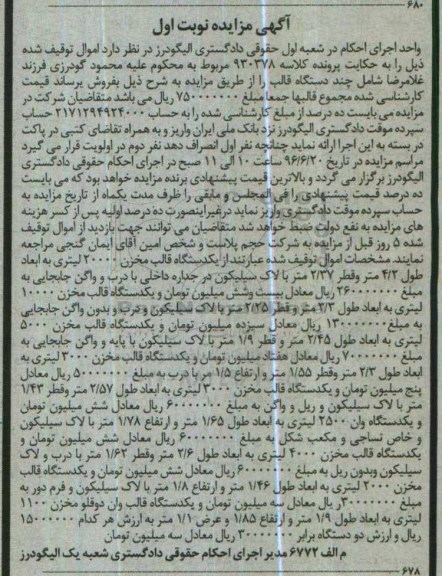 ۶۸۰
آگهی مزایده نوبت اول
واحد اجرای احکام در شعبه اول حقوقی دادگستری الیگودرز در نظر دارد اموال توقیف شده
ذیل را به حکایت پرونده کلاسه ۹۳۰۳۷۸ مربوط به محکوم علیه محمود گودرزی فرزند
غلامرضا شامل چند دستگاه قالب را از طریق مزایده به شرح ذیل بفروش برساند قیمت
کارشناسی شده مجموع قالبها جمعا مبلغ ۷۵۰۰۰۰۰۰۰ ریال می باشد متقاضیان شرکت در
مزایده می بایست ده درصد از مبلغ کارشناسی شده را به حساب ۲۱۷۱۲۹۴۹۲۴۰۰۰ حساب
سپرده موقت دادگستری الیگودرز نزد بانک ملی ایران واریز و به همراه تقاضای کتبی در پاکت
در بسته به این اجرا ارائه نماید چنانچه نفر اول انصراف دهد نفر دوم در اولویت قرار می گیرد
مراسم مزایده در تاریخ ۹۶/۶/۲۰ ساعت ۱۰ الی ۱۱ صبح در اجرای احکام حقوقی دادگستری
الیگودرز برگزار می گردد و بالاترین قیمت پیشنهادی برنده مزایده خواهد بود که می بایست
ده درصد قیمت پیشنهادی را فی المجلس و مابقی را ظرف مدت یکماه از تاریخ مزایده به
حساب سپرده موقت دادگستری واریز نماید درغیر اینصورت ده درصد اولیه پس از کسر هزینه
های مزایده به نفع دولت ضبط خواهد شد متقاضیان می توانند جهت بازدید از اموال توقیف
شده ۵ روز قبل از مزایده به شرکت حجم پلاست و شخص امین آقای ایمان گنجی مراجعه
نمایند. مشخصات اموال توقیف شده عبارتند از یکدستگاه قالب مخزن ۲۰۰۰۰ لیتری به ابعاد
طول ۴/۲ متر وقطر ۲/۳۷ متر با لاک سیلیکون در جداره داخلی با درب و واگن جابجایی به
مبلغ ۲۶۰۰۰۰۰۰۰ ریال معادل بیست وشش میلیون تومان و یکدستگاه قالب مخزن ۱۰۰۰۰
لیتری به ابعاد طول ۲/۳ متر و قطر ۲/۲۵ متر با لاک سیلیکون و درب و بدون واگن جابجایی
به مبلغ ۱۳۰۰۰۰۰۰۰ ریال معادل سیزده میلیون تومان و یکدستگاه قالب مخزن ۵۰۰۰
لیتری به ابعاد طول ۲/۴۵ متر و قطر ۱/۹ متر با لاک سیلیکون با پایه و واگن جابجایی به
مبلغ ۷۰۰۰۰۰۰۰ ریال معادل هفتاد میلیون تومان و یکدستگاه قالب مخزن ۳۰۰۰ لیتری به
ابعاد طول ۲/۳ متر وقطر ۱/۵۵ متر و ارتفاع ۱/۵ مر با درب به مبلغ ۵۰۰۰۰۰۰۰ ریال معادل
پنج میلیون تومان و یکدستگاه قالب مخزن ۳۰۰۰ لیتری به ابعاد طول ۲/۵۷ متر وقطر ۱/۴۳
متر با لاک سیلیکون و ریل و واگن به مبلغ ۶۰۰۰۰۰۰۰ ریال معادل شش میلیون تومان
و یکدستگاه وان ۲۵۰۰ لیتری به ابعاد طول ۱/۶۵ متر و ارتفاع ۱/۷۸ متر با لاک سیلیکون
و خاص نساجی و مکعب شکل به مبلغ ۶۰۰۰۰۰۰۰ ریال معادل شش میلیون تومان و
یکدستگاه قالب مخزن ۴۰۰۰ لیتری به ابعاد طول ۲/۶ متر وقطر ۱/۶۳ متر با درب و لاک
سیلیکون وبدون ریل به مبلغ ۶۰۰۰۰۰۰۰ ریال معادل شش میلیون تومان و یکدستگاه قالب
مخزن ۲۰۰۰ لیتری به ابعاد طول ۱/۴۶ متر و ارتفاع ۱/۸ متر با لاک سیلیکون و فرم دور به
مبلغ ۳۰۰۰۰۰۰۰ ریال معادل سه میلیون تومان و یکدستگاه قالب وان دوقلو مخزن ۱۱۰۰
لیتری به ابعاد طول ۱/۹ متر و ارتفاع ۱/۸۵ و عرض ۱/۱ متر به ارزش هر کدام ۱۵۰۰۰۰۰۰
ریال و ارزش دو دستگاه برابر ۳۰۰۰۰۰۰۰ ریال معادل سه میلیون تومان
م الف ۶۷۷۲ مدیر اجرای احکام حقوقی دادگستری شعبه یک الیگودرز
۶۷۸